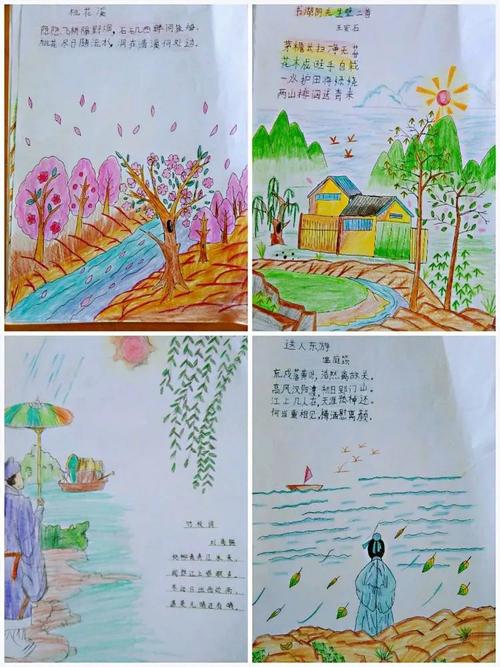 桃花溪
隐隐飞桥隔野烟，石矶西畔问渔船。
桃花尽日随流水，洞在清溪何处边。
书湖阴先生壁二首
王安石
茅檐长扫净无苔
花木成畦手自栽
一水护田将绿绕
两山排闼送青来
竹枝词
刘禹锡
杨柳青青江水平，
闻郎江上唱歌声。
东边日出西边雨，
道是无晴还有晴。
送人东游
温庭筠
荒戍落黄叶，浩然离故关。
高风汉阳渡，初日郢门山。
江上几人在，天涯孤棹还。
何当重相见，樽酒慰离颜。